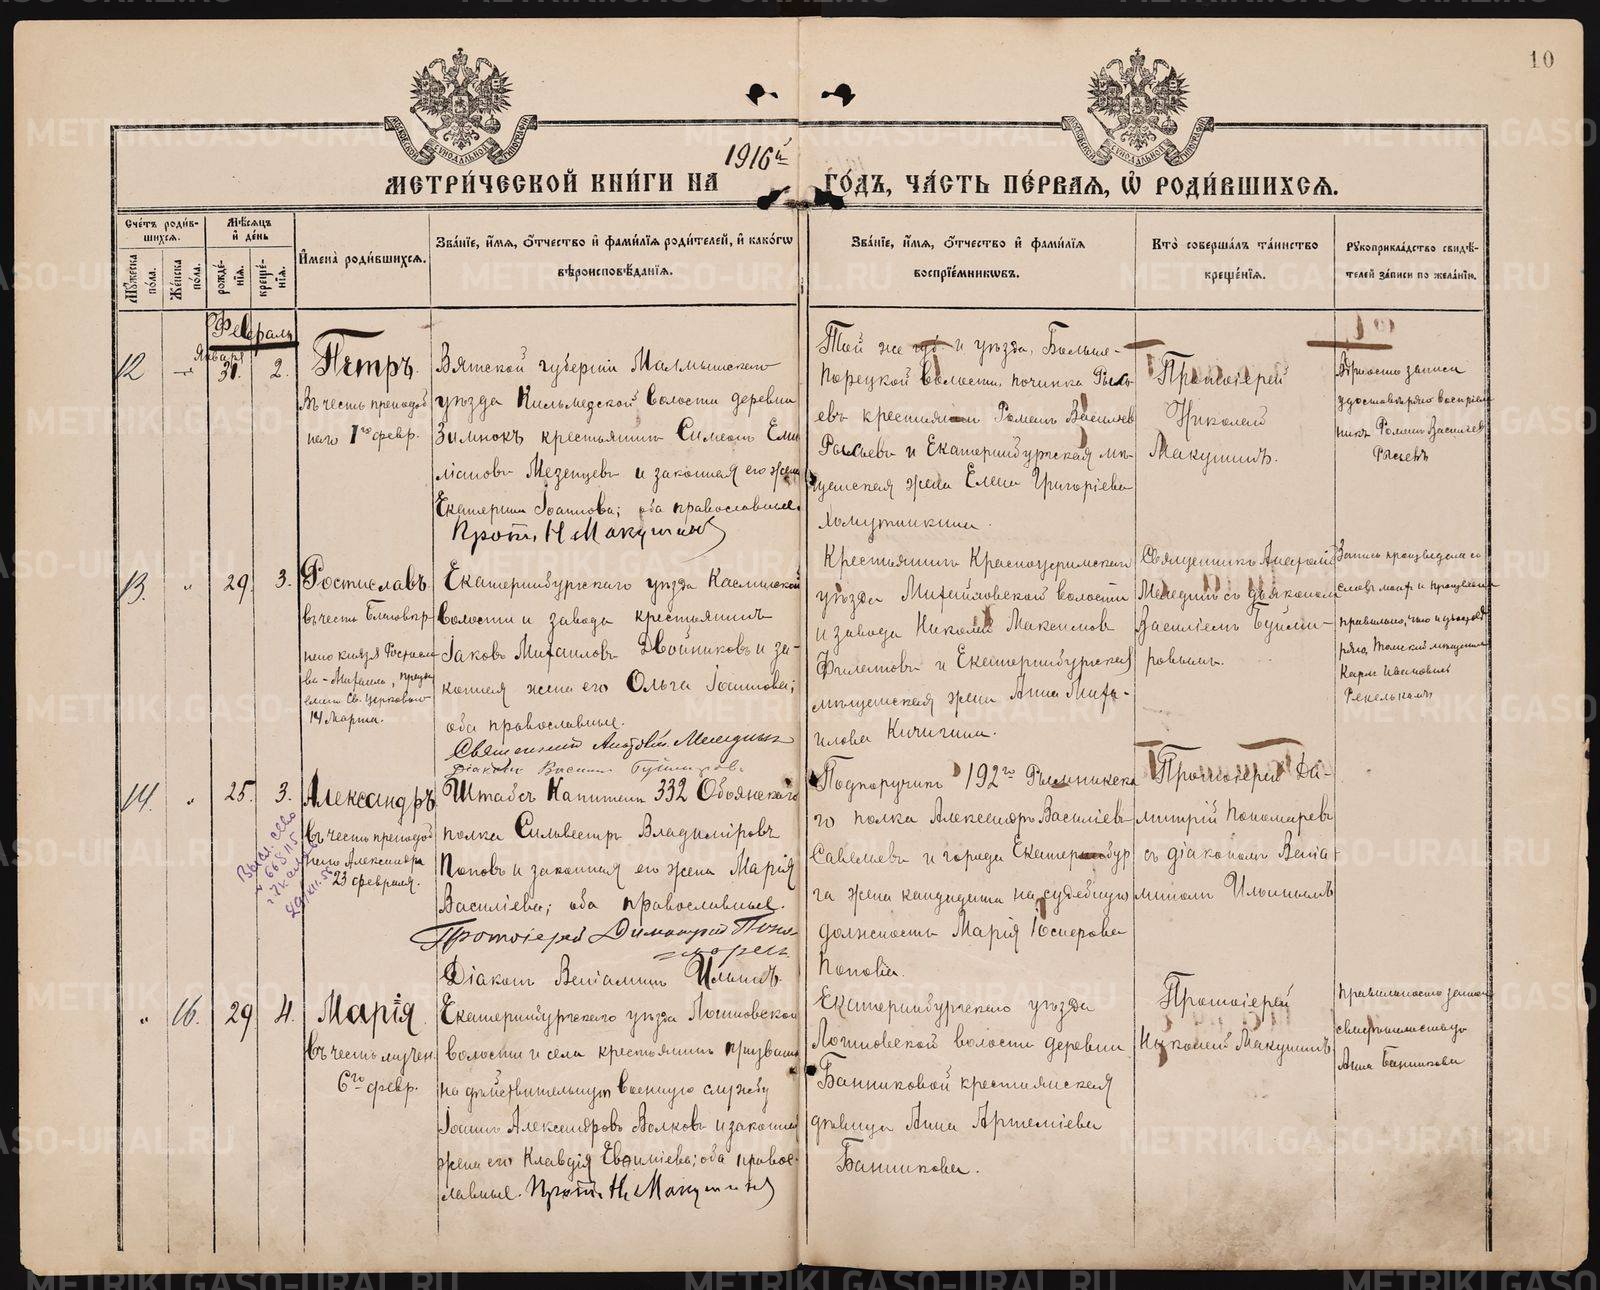 10
МЕТРИ́ЧЕСКОЙ КНИ́ГИ НА 1916й ГО́ДЪ, ЧА́СТЬ ПЕ́РВАЯ, Ѡ РОДИ́ВШИХСЯ.
Сче́тъ роди́в-
шихся.
Мꙋ́жеска по́ла.
Же́нска по́ла.
Мѣ́сяцъ и҆ де́нь
рожде́-
нїя.
креще́-
нїя.
И҆мена̀ роди́вшихся.
Зва́нїе, и҆́мя, ѻ҆́тчество и҆ фами́лїя роди́телей, и҆ како́гѡ
вѣроисповѣ́данїя.
Зва́нїе, и҆́мя, ѻ҆́тчество и҆ фами́лїя
воспрїе́мникѡвъ.
Кто̀ соверша́лъ та́инство
креще́нїя.
Рꙋкоприкла́дство свидѣ́-
телей за́писи по жела́нїю.
Февраль
12
Января
31.
2.
Петръ.
Въ честь преподоб
наго 1го февр.
Вятской губерніи Малмыжскаго
уѣзда Кильмезской волости деревни
Зимнокъ крестьянинъ Симеонъ Еми
ліановъ Мезенцевъ и законная его жена
Екатерина Іоаннова; оба православные.
Прот. Н. Макушинъ
Той же губ. и уѣзда, Больше-
Порецкой волости, починка Рысь
евъ крестьянин Романъ Васильев
Рысьевъ и Екатеринбургская мѣ
щанская жена Елена Григоріева
Хомутинкина.
Протоіерей
Николай
Макушинъ.
Вѣрность записи
удостовѣряю воспріем
никъ Романъ Васильев
Рысьевъ
13.
"
29.
3.
Ростиславъ.
въ честь Благовѣр
наго князя Ростисла
ва-Михаила,
Св. Церковью
14 Марта.
Екатеринбургскаго уѣзда Каслинской
волости и завода крестьянинъ
Іаковъ Михаиловъ Двойниковъ и за-
конная жена его Ольга Іоаннова;
оба православные.
Священникъ Анатолій Меледин
Діаконъ Василій
Крестьянинъ Красноуфимскаго
уѣзда Михайловской волости
и завода Николай Максимов
Филатовъ и Екатеринбургская
мѣщанская жена Анна Миха-
илова Кичигина.
Священникъ Анатолій
Меледин съ діакономъ
Василіемъ
Запись произведена со
словъ моих и прочтена
правильно, что и удостовѣ
ряю, Томский мещанин
Карл Ивановичъ
14.
"
25.
3.
Александръ
въ честь преподоб
наго Александра
23 февраля.
Штабсъ Капитанъ 332 Обоянскаго
полка Сильвестръ Владиміровъ
Поповъ и законная его жена Марія
Василіева; оба православные.
Протоіерей Димитрій Поно
марев
Діаконъ Веніаминъ Ильинъ
Подпоручикъ 192го Рымникска
го полка Александръ Василіев
Савельевъ и города Екатеринбур
га жена кандидата на судебную
должность Марія Іосифова
Попова.
Протоіерей Ди-
митрій Пономаревъ
съ діакономъ Веніа-
миномъ Ильинымъ
"
16.
29
4.
Марія.
въ честь мучен.
6го февр.
Екатеринбургскаго уѣзда Логиновской
волости и села крестьянинъ призванный
на дѣйствительную военную службу
Іоаннъ Александровъ Волковъ и законная
жена его Клавдія Евѳиміева; оба право-
славные. Прот. Н. Макушинъ
Екатеринбургскаго уѣзда
Логиновской волости деревни
Банниковой крестьянская
дѣвица Анна Артеміева
Банникова.
Протоіерей
Николай Макушинъ
Правильность записи
свидѣтельствую
Анна Банникова